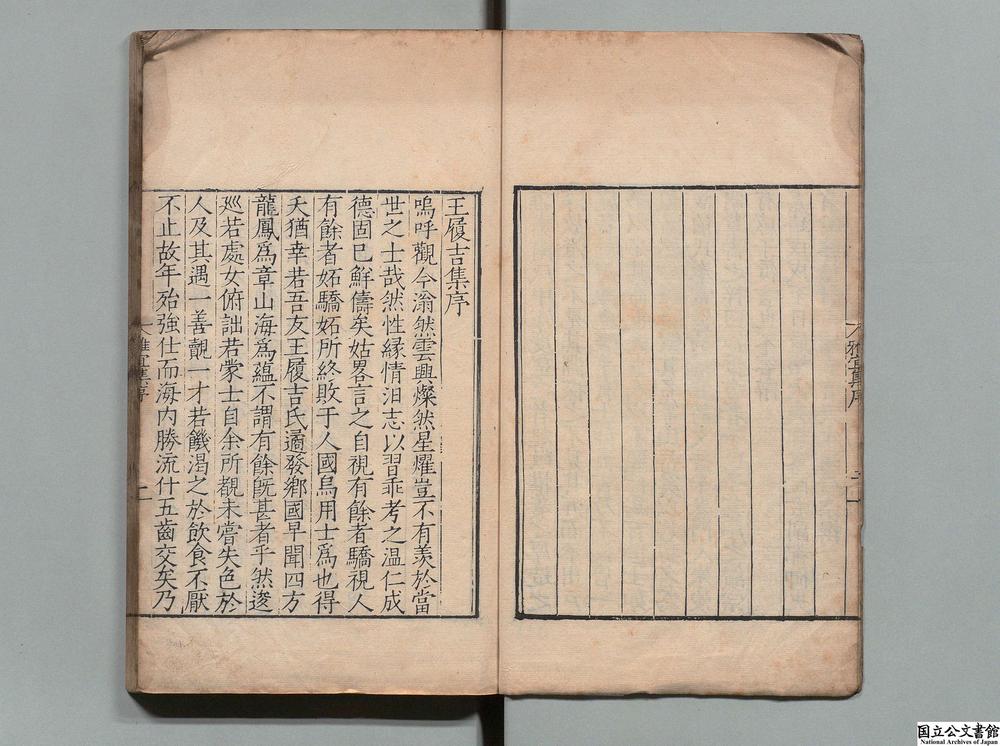 王履吉集序
嗚呼觀今滃然雲興燦然星燿豈不有羨於當
世之士哉然性緣情汨志以習乖考之温仁成
德固已鮮儔矣姑畧言之自視有餘者驕視人
有餘者妬驕妬所終敗于人國烏用士爲也得
夭猶幸若吾友王履吉氏邁發鄉國早聞四方
龍鳳爲章山海爲蘊不謂有餘旣甚者乎然逡
廵若處女俯詘若蒙士自余所覩未嘗失色於
人及其遇一善覿一才若饑渴之於飲食不厭
不止故年殆強仕而海内勝流什五齒交矣乃
雅宜集序
二
雅宜集序
国立公文書館
National Archives of Japan